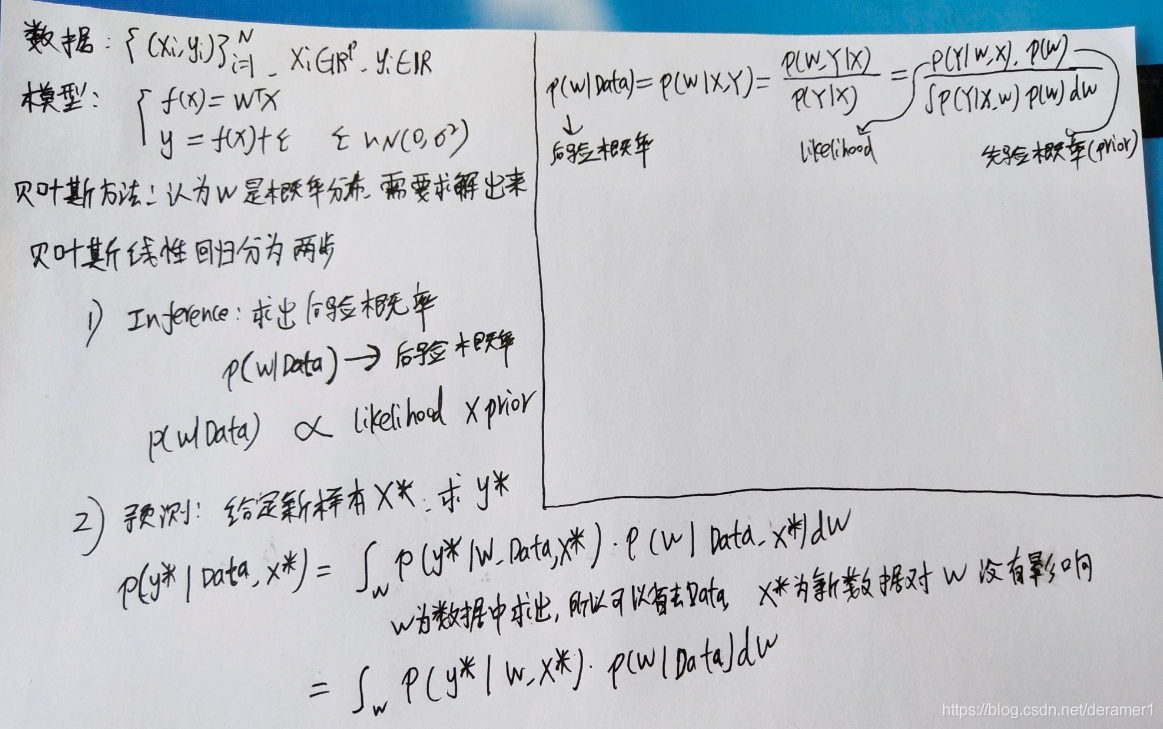 数据: {(xi,yi)}_{i=1}^N, xi∈ℝ^p, yi∈ℝ
模型: { f(x)=W^T X
y = f(x)+ε ε~N(0,σ²)
贝叶斯方法: 认为W是概率分布,需要求解出来
贝叶斯线性回归分为两步
1) Inference: 求出后验概率
p(W|Data) → 后验概率
p(W|Data) ∝ likelihood × prior
2) 预测: 给定新样本X*,求 y*
p(y*|Data,X*) = ∫_w p(y*|W,Data,X*)·p(W|Data,X*)dW
W为数据中求出,所以可以省去Data, X*为新数据对W没有影响
= ∫_w p(y*|W,X*)·p(W|Data)dW
p(W|Data)=p(W|X,Y)= p(W,Y|X) / p(Y|X) = p(Y|W,X)·p(W) / ∫p(Y|X,W)p(W)dW
后验概率 likelihood 先验概率(prior)
https://blog.csdn.net/deramer1